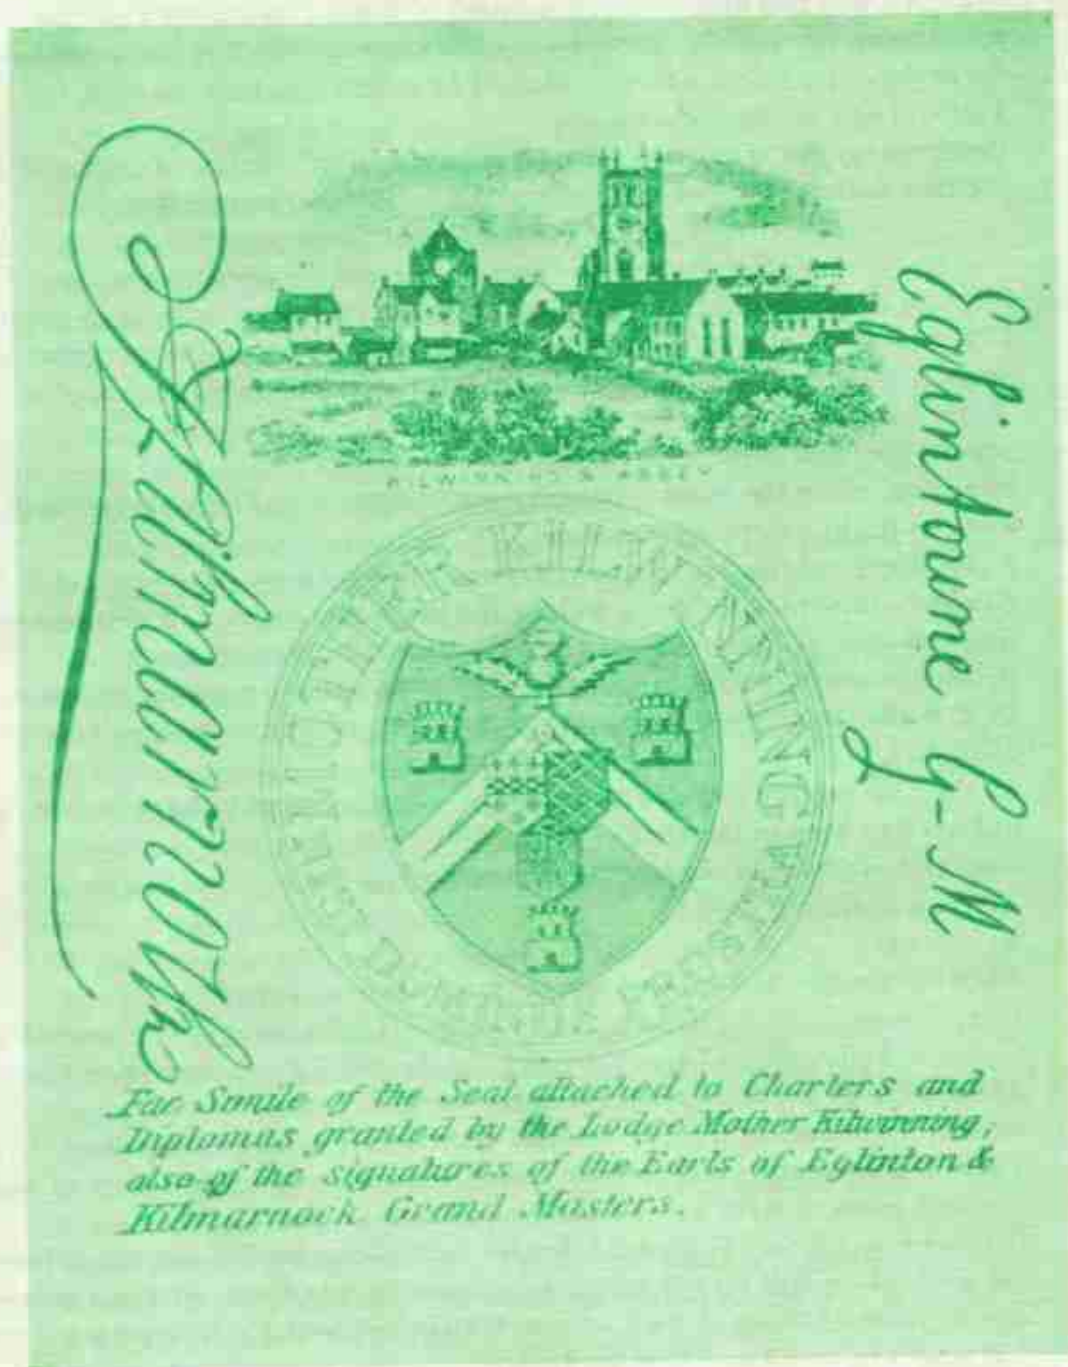 Kilmarnock
Eglintoune G-M
KILWINNING ABBEY
MOTHER KILWINNING
Fac Simile of the Seal attached to Charters and
Diplomas granted by the Lodge Mother Kilwinning,
also of the signatures of the Earls of Eglinton &
Kilmarnock Grand Masters.